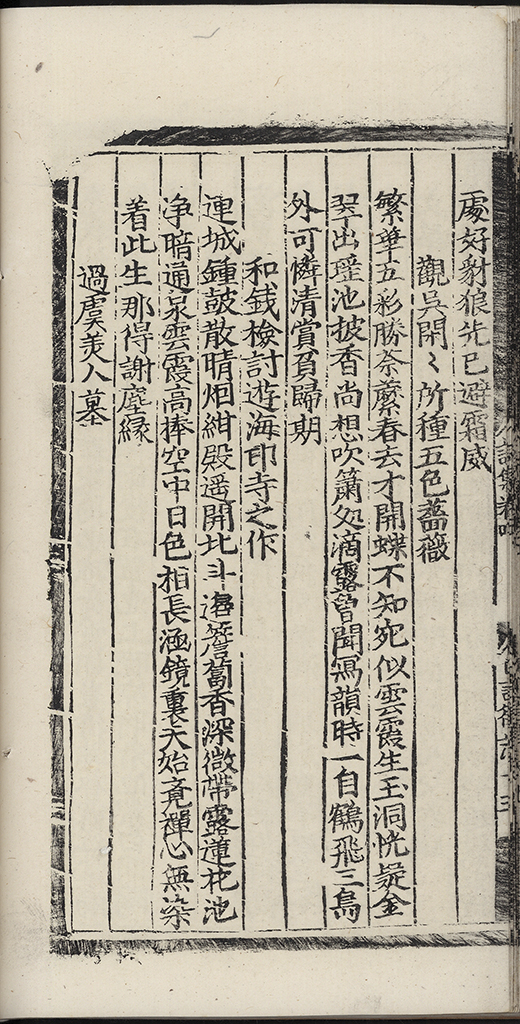 處好豺狼先已避霜威
觀吳閑〻所種五色薔薇
繁華五彩勝荼蘼春去才開蝶不知宛似雲霞生玉洞恍疑金
翠出瑶池披香尚想吹簫処滴露曾聞寫韻時一自鶴飛三島
外可憐清賞負歸期
和錢檢討遊海印寺之作
連城鍾鼓散晴烟紺殿遥開北斗邊簷蔔香深微帶露蓮花池
净暗通泉雲霞高捧空中日色相長涵鏡裏天始竟禪心無染
着此生那得謝塵緣
過虞美人墓